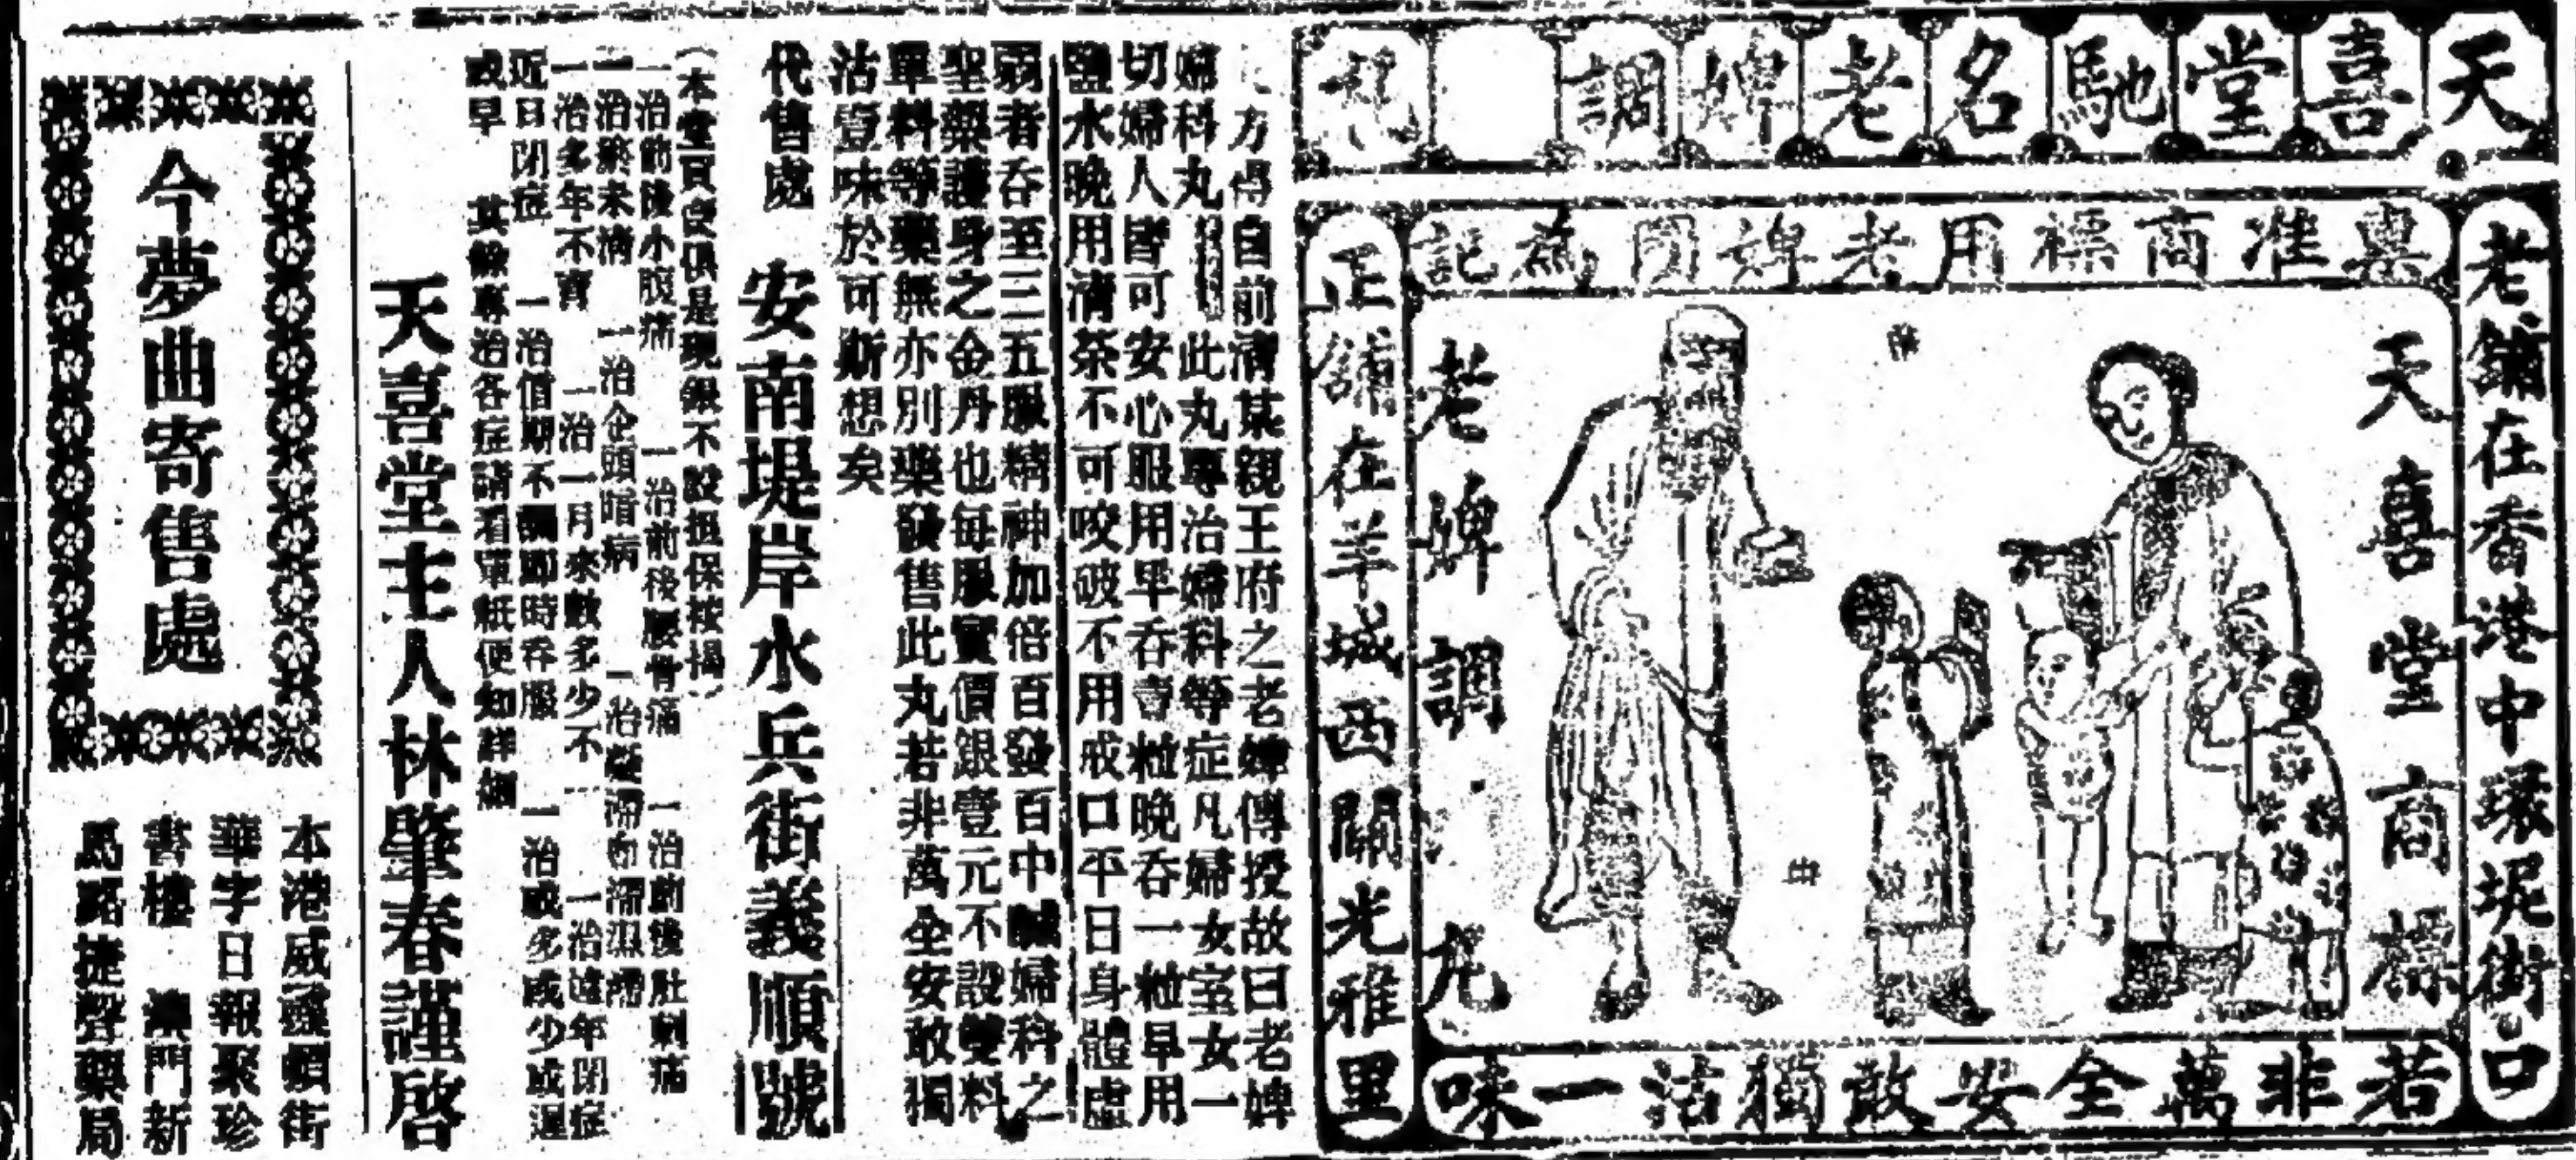 天喜堂馳名老婢調 丸
老舖在香港中環堤街口
稟准商標用老婢圖為記
天喜堂商標
老婢調丸
正舖在羊城西關光雅里
若非萬全安敢獨沽一味
方得自前清某親王府之老婢傳授故曰老婢
婦科丸 此丸專治婦科等症凡婦女室女一
切婦人皆可安心服用早吞壹粒晚吞一粒早用
鹽水晚用清茶不可咬破不用戒口平日身體虛
弱者吞至三五服精神加倍百發百中誠婦科之
聖藥護身之金丹也每服實價銀壹元不設雙料
單料等藥無亦別藥發售此丸若非萬全安敢獨
沽壹味於可斯想矣
代售處 安南堤岸水兵街義順號
(本堂買賣俱是現銀不設抵保按揭)
一治前後小腹痛 一治前後腰骨痛 一治前後肚刺痛
一治瘀未清 一治企頭暗病 一治凝滯
一治多年不育 一治一月來數多少不 一治遠年閉症
近日閉症 一治值期不調即時吞服 一治或多或少或遲
或早 其餘專治各症請看單紙便知詳細
天喜堂主人林肇春謹啓
今夢曲寄售處
本港威靈頓街
華字日報聚珍
書樓 澳門新
馬路捷聲藥局